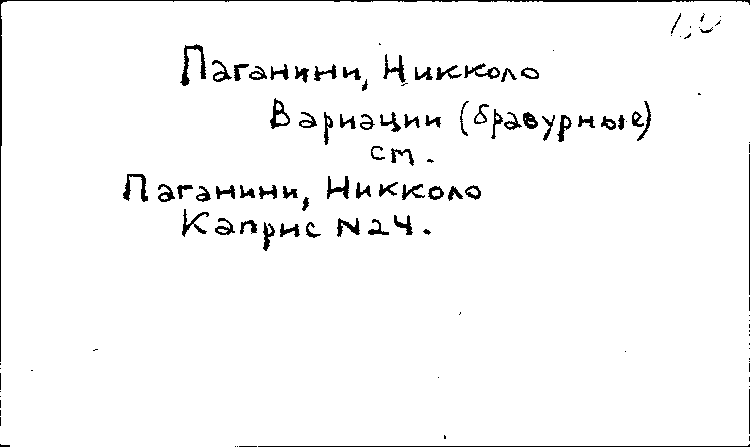 Паганини, Никколо
Вариации (бравурные)
см.
Паганини, Никколо
Каприс N24.